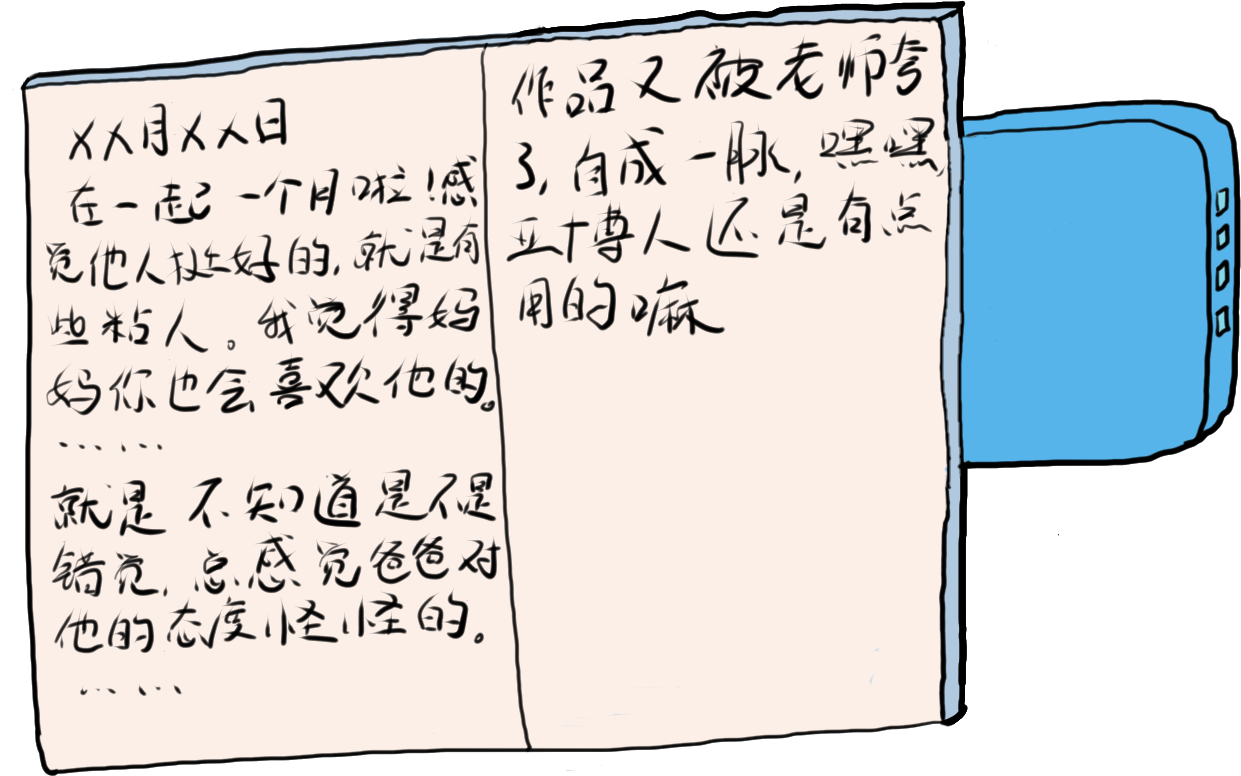 XX月XX日
在一起一个月啦!感
觉他人挺好的,就是有
些粘人。我觉得妈
妈你也会喜欢他的。
……
就是不知道是不是
错觉,总感觉爸爸对
他的态度怪怪的。
……
作品又被老师夸
了,自成一脉,嘿嘿
亚博人还是有点
用的嘛